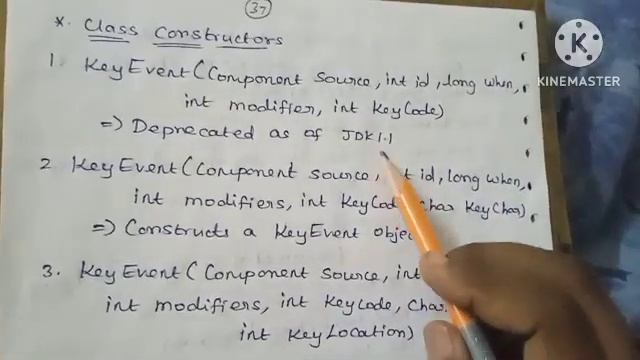 37
*. Class Constructors
1. KeyEvent(Component Source, int id, long when,
int modifier, int KeyCode)
=> Deprecated as of JDK1.1
2 KeyEvent(Component source, id, long when,
int modifiers, int KeyCode, Char KeyChar)
=> Constructs a KeyEvent
3. KeyEvent(Component Source, int
int modifiers, int KeyCode, Char
int KeyLocation)
KINEMASTER